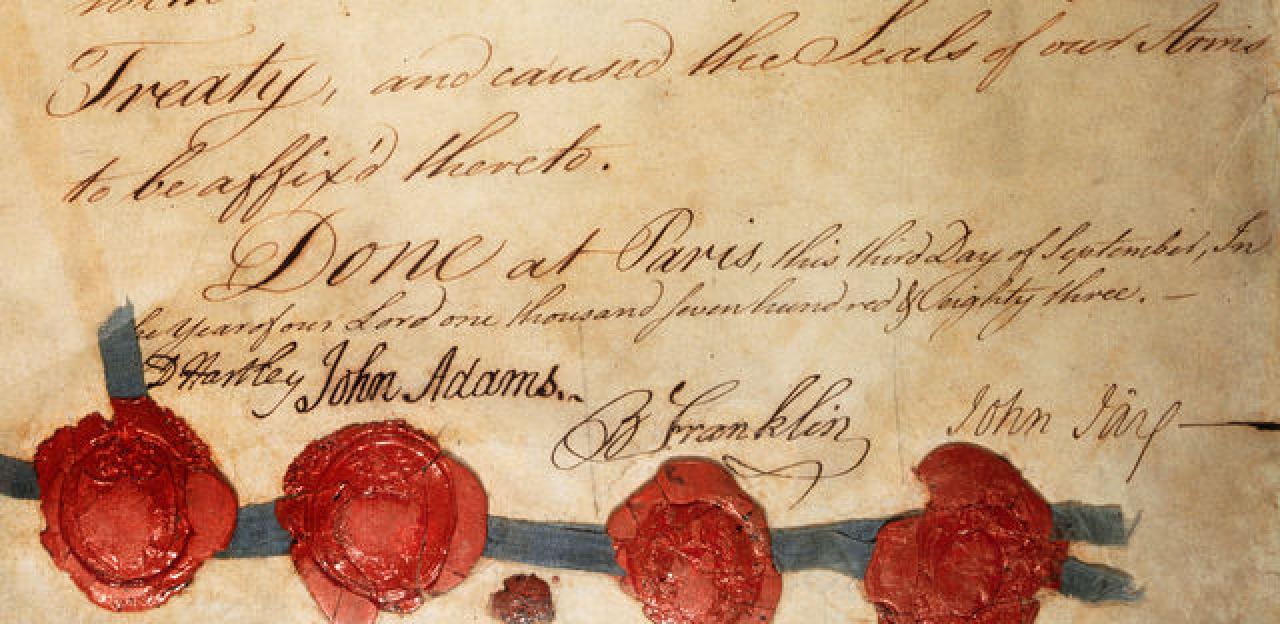 Treaty, and caused the Seals of our Arms
to be affix'd thereto.
Done at Paris, this third Day of September, In
he Year of our Lord one thousand seven hundred & Eighty three. —
D Hartley John Adams.
B Franklin John Jay —